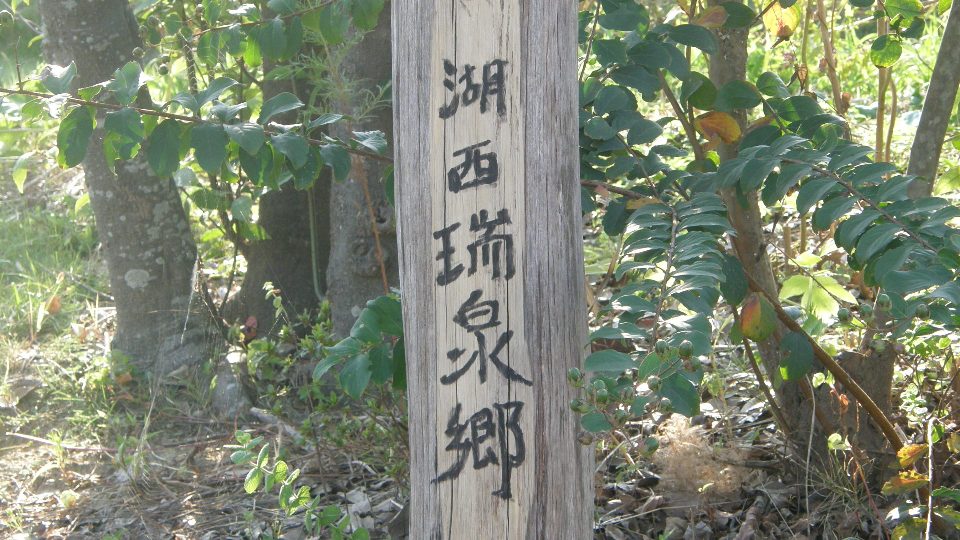 湖西瑞泉郷